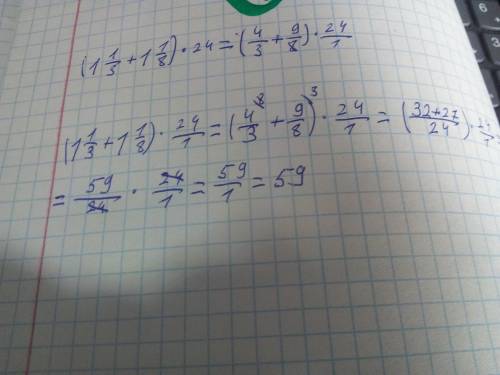 (1 1/3 + 1 1/8) · 24 = (4/3 + 9/8) · 24/1
(1 1/3 + 1 1/8) · 24/1 = (4/3 ⁸ + 9/8 ³) · 24/1 = (32+27/24) · 24/1
= 59/24 · 24/1 = 59/1 = 59